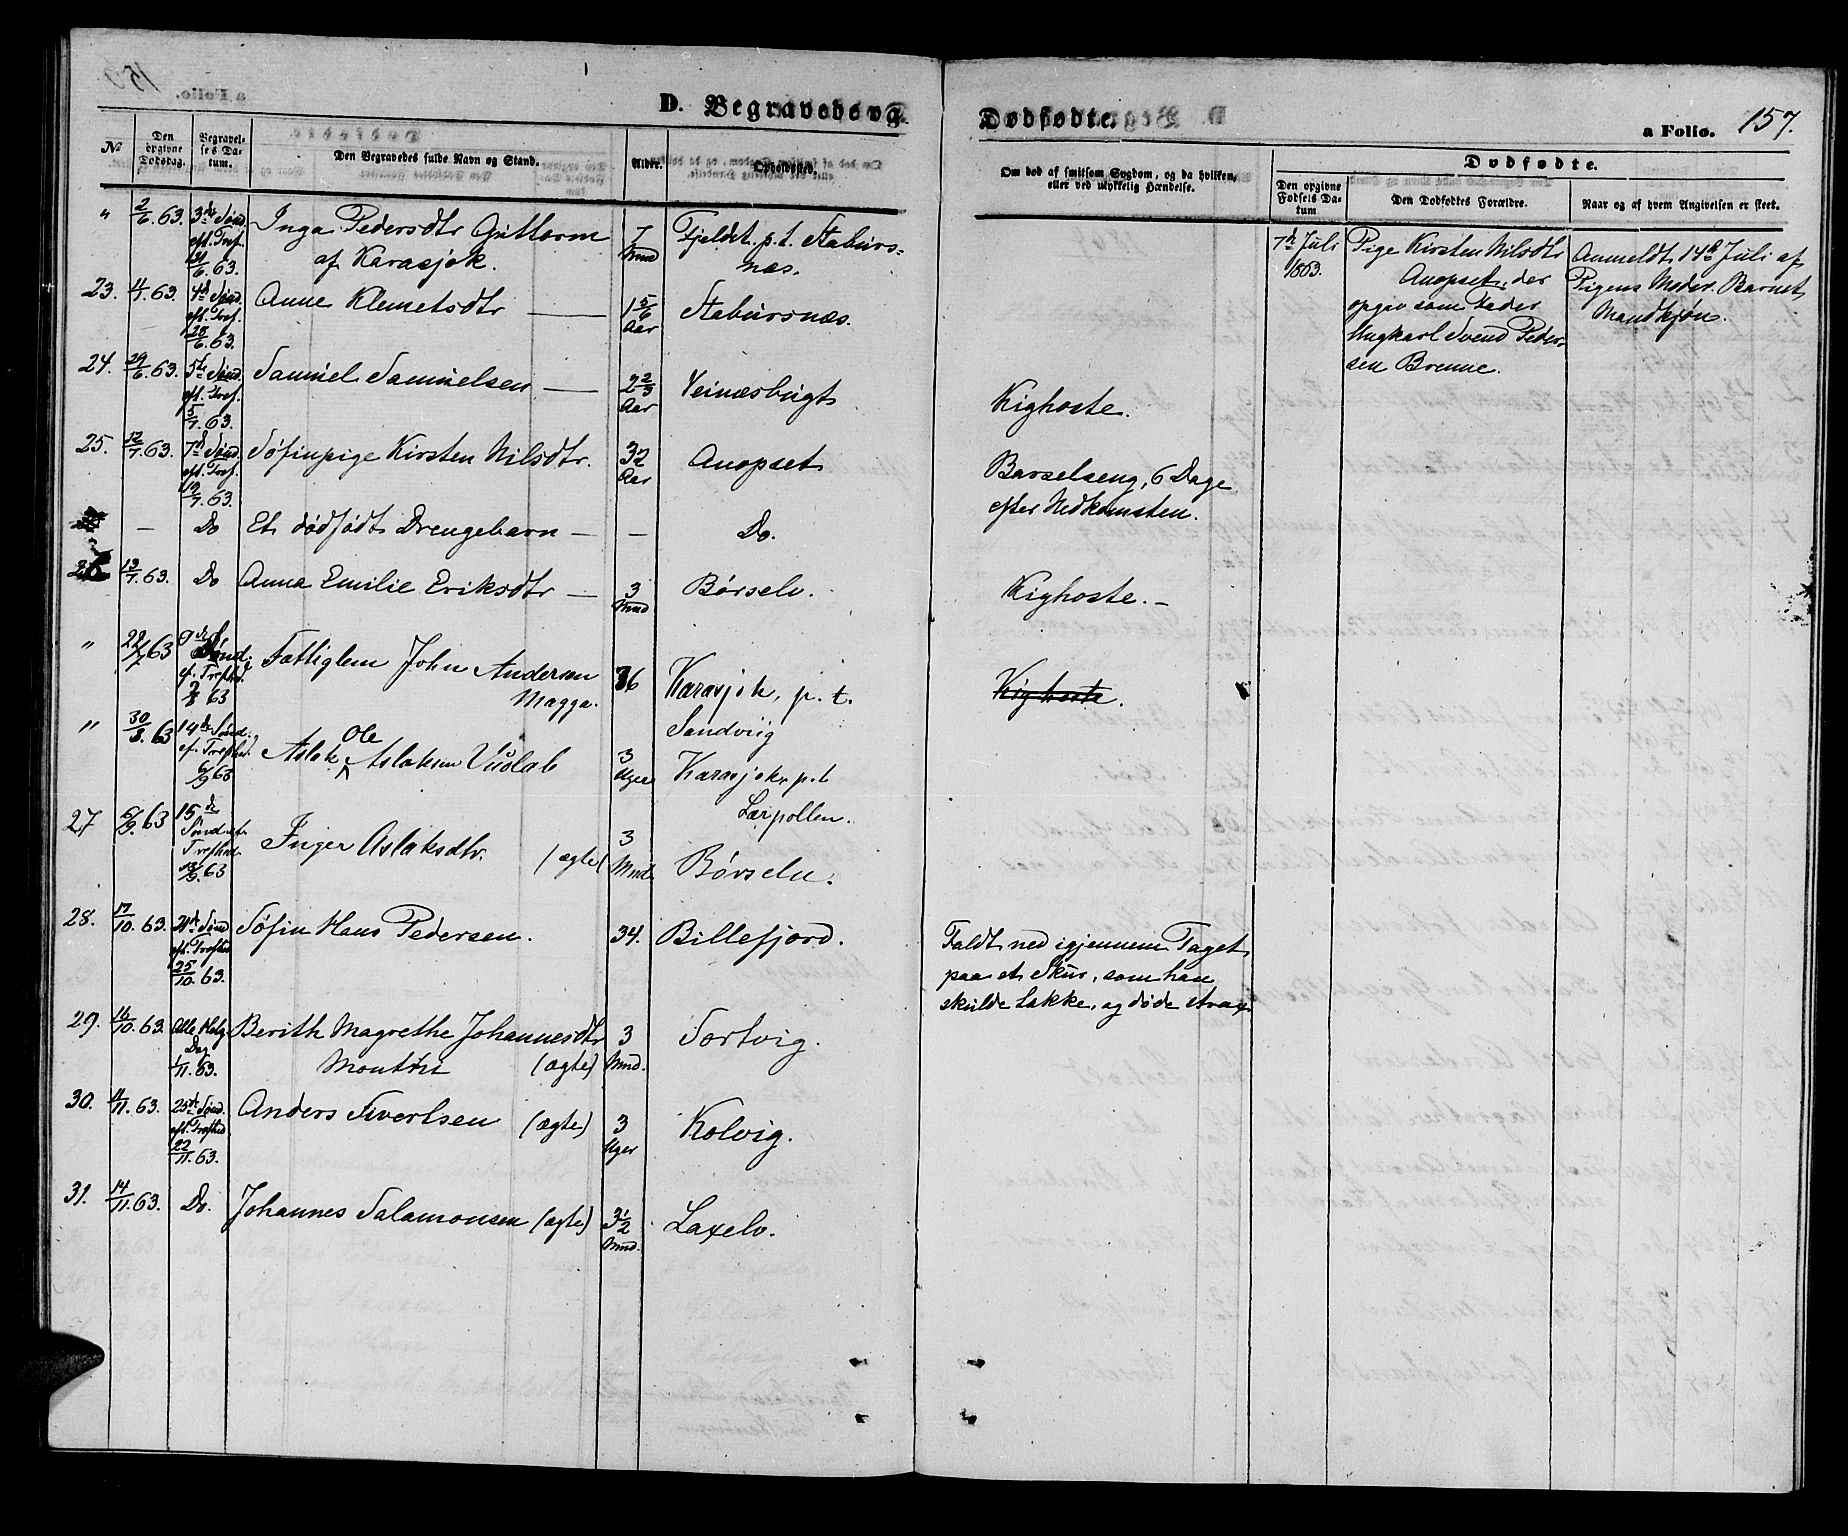 D. Begravede og Dødfødte.
a Folio. 157.
№
Den opgivne Dødsdag.
Begravelses Datum.
Den Begravedes fulde Navn og Stand.
Alder.
Opholdssted.
Om død af smitsom Sygdom, og da hvilken, eller ved ulykkelig Hændelse.
Dødfødte.
Den opgivne Fødsels Datum
Den Dødfødtes Forældre.
Naar og af hvem Angivelsen er skeet.
" 2/6. 63. 3de Sønd. eft. Tref. 21/6. 63. Inga Pedersdtr Guttorm af Karasjok. 7 Mnd Fjeldet. p.t. Stabursnæs.
7de Juli 1863. Pige Kirsten Nilsdtr Anopset, der opgav som Fader Ungkarl Svend Pedersen Brenne.
Anmeldt 14de Juli af Pigens Moder. Barnet Mandkjøn.
23. 63. 4de Sønd. eft. Tref. 28/6. 63. Anne Klemetsdtr — 1 5/6 Aar Stabursnæs.
24. 29/6. 63. 5te Sønd. eft. Tref. 5/7. 63. Samuel Samuelsen — 2 2/3 Aar Veinæsbugt Kighoste.
25. 12/7. 63. 7de Sønd. eft. Tref. 19/7. 63. Søfinpige Kirsten Nilsdtr. 32 Aar Anopset Barselseng, 6 Dage efter Nedkomsten.
— Do Et dødfødt Drengebarn — — Do.
26 13/7. 63. Do Anna Emilie Eriksdtr — 3 Mnd Børselv. Kighoste. –
" 63 9de Sønd. ef. Trefhd. 2/8 63 Fattiglem John Andersen Magga. 76 Karasjok, p. t. Sandvig Kighoste.
" 30/8. 63 14de Sønd. ef. Trefhd. 6/9 63 Aslak Ole Aslaksen Vuolab 3 Uger Karasjok p.t Lærpollen.
27 6/9. 63 15de Sønd. ef. Trefhd. 13/9. 63 Inger Aslaksdtr. (ægte) 3 Mnd. Børselv.
28. 17/10. 63. 21de Sønd. eft. Trefhd 25/10. 63. Søfin Hans Pedersen. 34. Billefjord. Faldt ned igjennem Taget paa et Skur, som han skulde lække, og døde strax.
29. 16/10. 63. Alle Helg. Dag 1/11. 63. Berith Magrethe Johannesdtr (ægte) 3 Mnd. Sortvig.
30. 63. 25de Sønd. eft. Trefhd. 22/11. 63. Anders Sivertsen (ægte) 3 Uger Kolvig.
31. 14/11. 63. Do. Johannes Salamonsen (ægte) 3 1/2 Mnd. Laxelv.